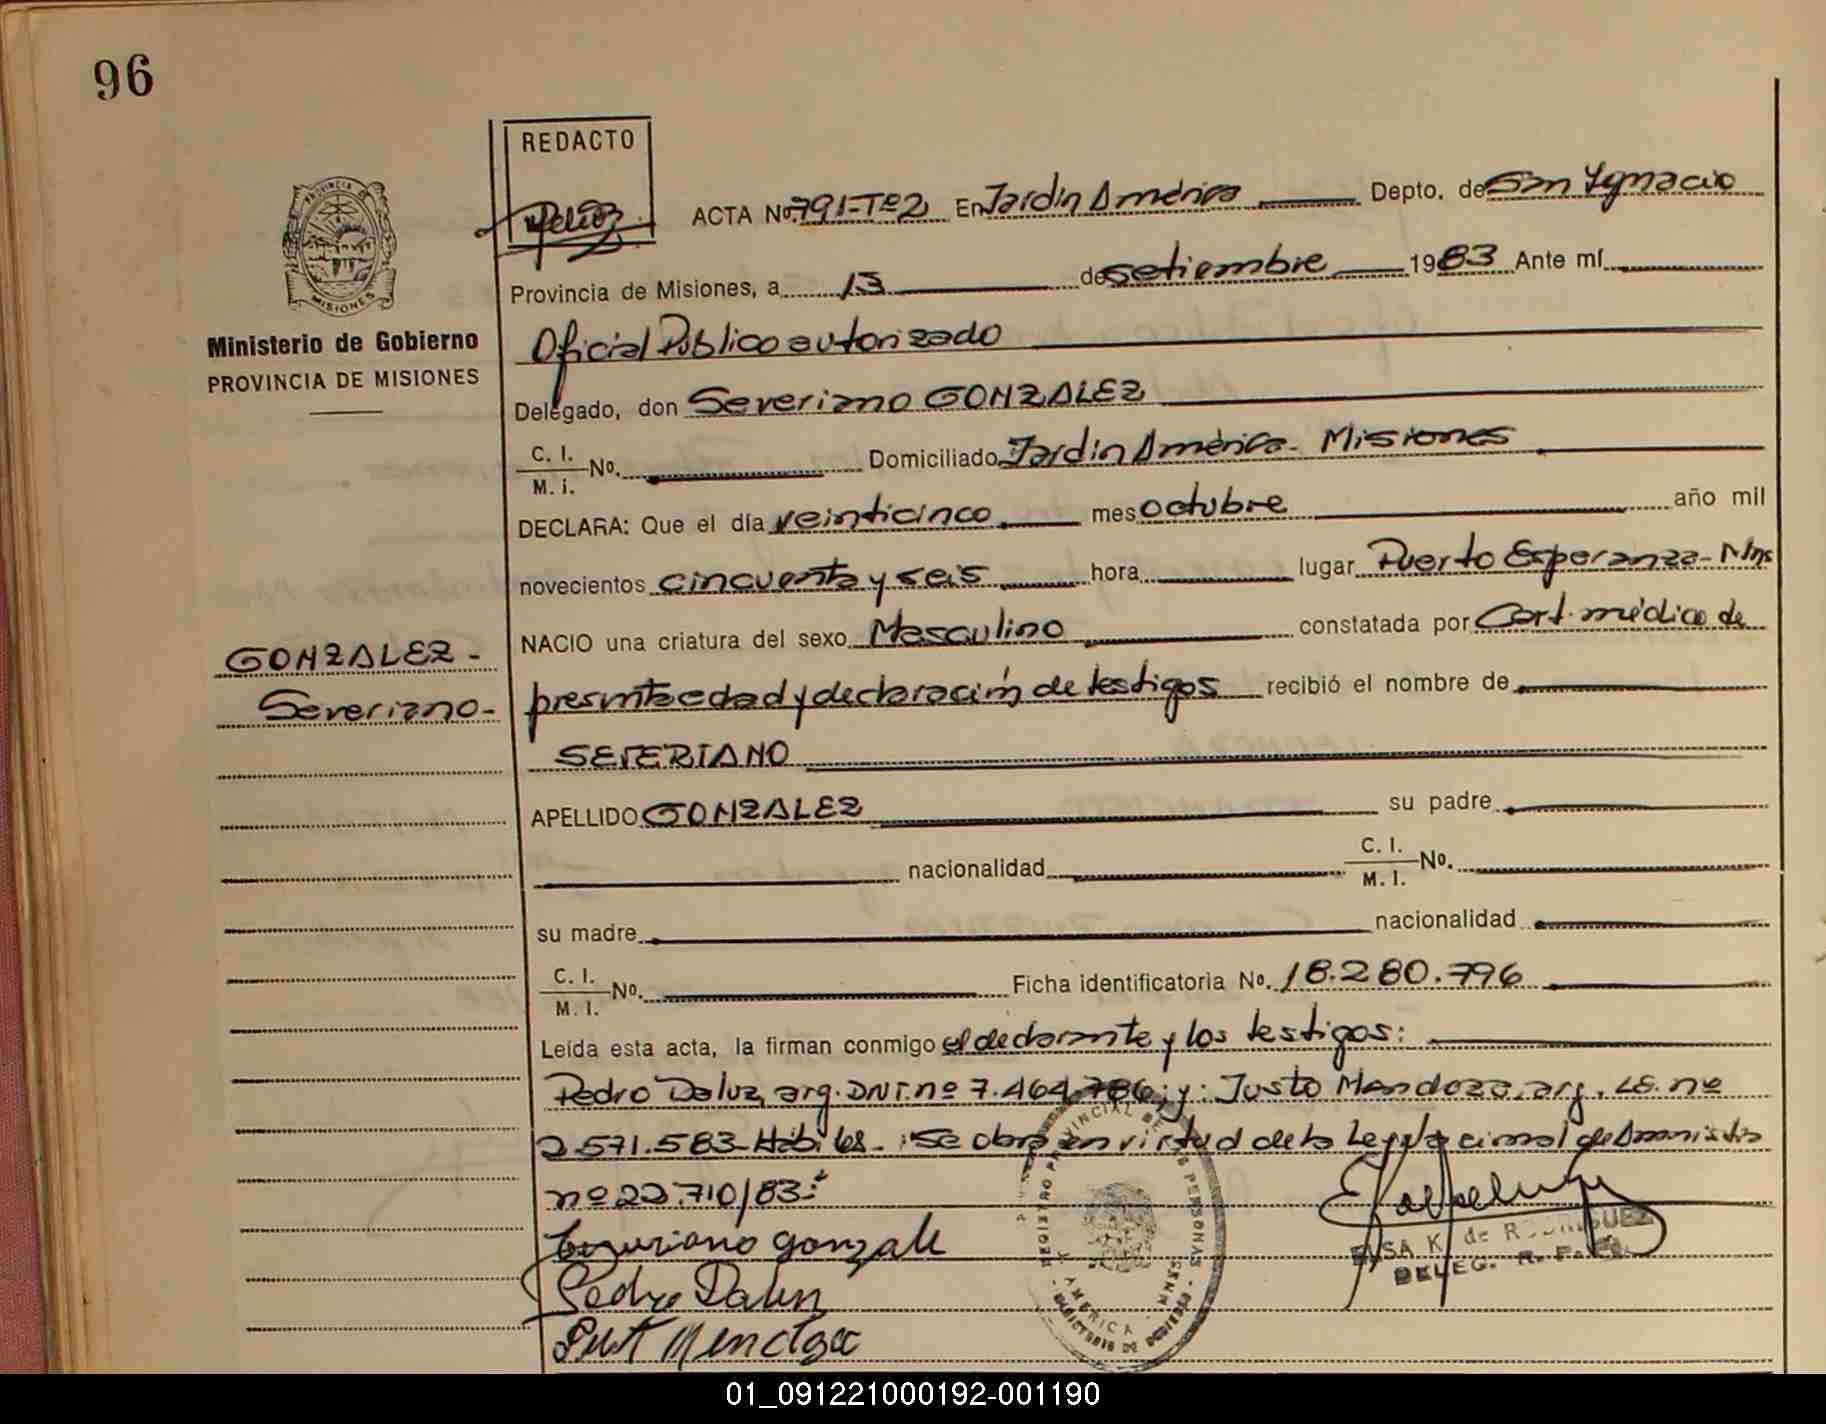 96
REDACTO
PROVINCIA DE
MISIONES
ACTA No. 791-Tº2 En Jardín América Depto. de San Ygnacio
Provincia de Misiones, a 13 de setiembre 1983 Ante mí
Ministerio de Gobierno
PROVINCIA DE MISIONES
Oficial Público autorizado
Delegado, don Severiano GONZALEZ
C. I.
M. i. No. Domiciliado Jardín América - Misiones
DECLARA: Que el día veinticinco mes octubre año mil
novecientos cincuenta y seis hora lugar Puerto Esperanza - Mns
NACIO una criatura del sexo Masculino constatada por Cert. médico de
GONZALEZ -
Severiano -
presunta edad y declaración de testigos recibió el nombre de
SEVERIANO
APELLIDO GONZALEZ su padre
nacionalidad C. I.
M. I. No.
su madre nacionalidad
C. I.
M. I. No. Ficha identificatoria No. 18.280.796
Leída esta acta, la firman conmigo el declarante y los testigos:
Pedro Daluz, arg. DNI. nº 7.464.786; y: Justo Mendoza, arg. LE. nº
2.571.583 - Hábiles - Se obra en virtud de la Ley Nacional de Amnistía
nº 22.710/83.-
gonzale
Pedro Dalu
Mendoza
ELSA K. de RODRIGUEZ
DELEG. R. P.